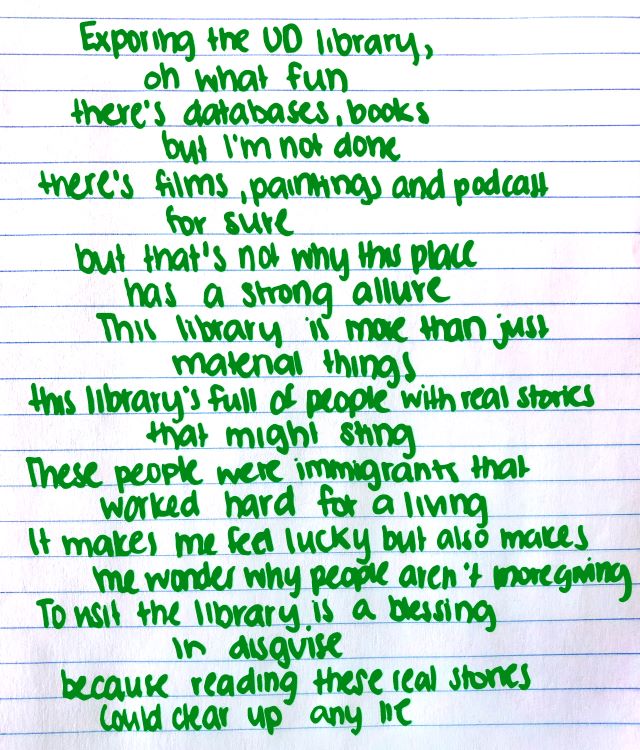 Exporing the UD library,
oh what fun
there's databases, books
but I'm not done
there's films, paintings and podcast
for sure
but that's not why this place
has a strong allure
This library is more than just
material things
this library's full of people with real stories
that might sting
These people were immigrants that
worked hard for a living
It makes me feel lucky but also makes
me wonder why people aren't more giving
To visit the library is a blessing
in disguise
because reading these real stories
could clear up any lie